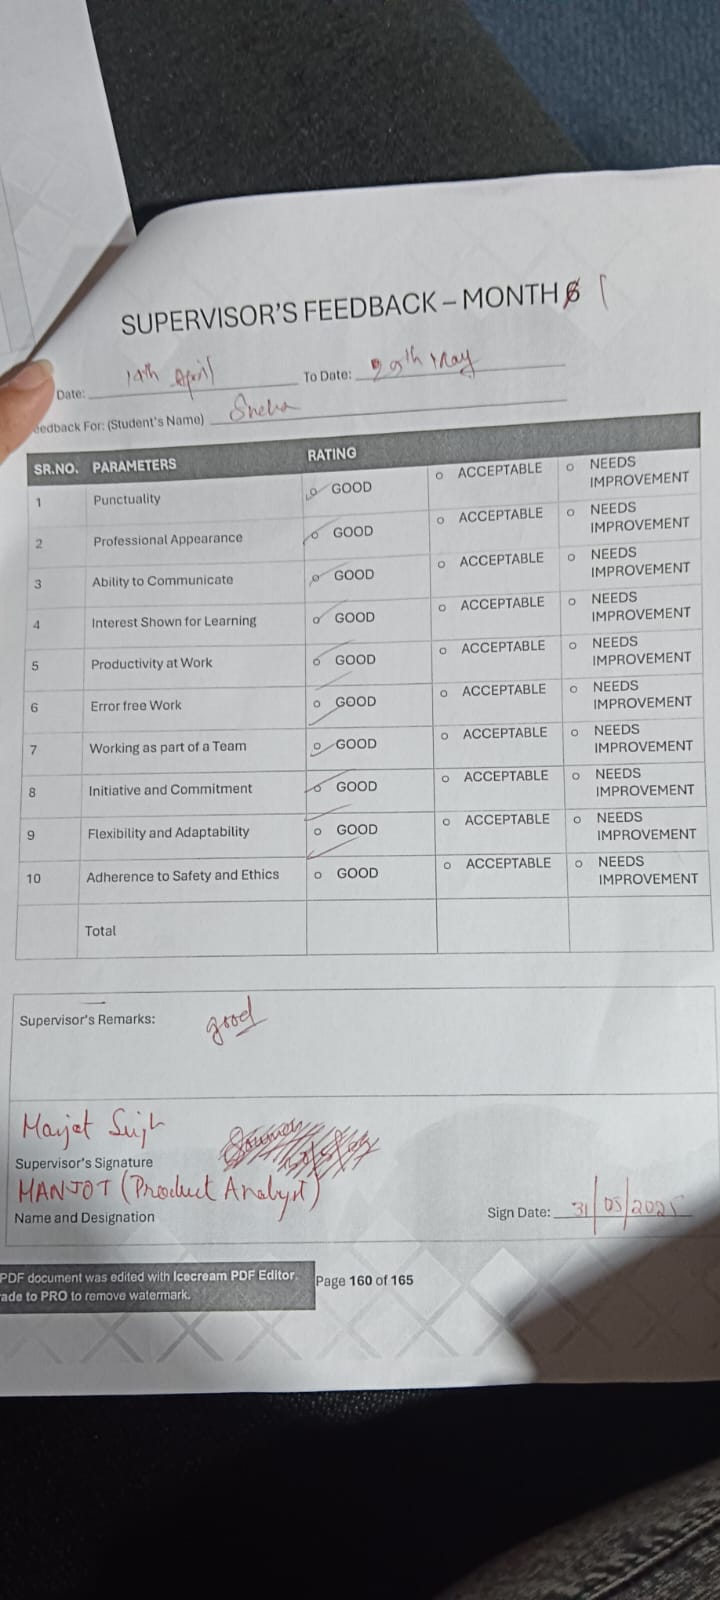 SUPERVISOR'S FEEDBACK – MONTH 1
Date: 14th April To Date: 29th May
eedback For: (Student's Name) Sneha
SR.NO. PARAMETERS RATING
1 Punctuality GOOD ACCEPTABLE NEEDS IMPROVEMENT
2 Professional Appearance GOOD ACCEPTABLE NEEDS IMPROVEMENT
3 Ability to Communicate GOOD ACCEPTABLE NEEDS IMPROVEMENT
4 Interest Shown for Learning GOOD ACCEPTABLE NEEDS IMPROVEMENT
5 Productivity at Work GOOD ACCEPTABLE NEEDS IMPROVEMENT
6 Error free Work GOOD ACCEPTABLE NEEDS IMPROVEMENT
7 Working as part of a Team GOOD ACCEPTABLE NEEDS IMPROVEMENT
8 Initiative and Commitment GOOD ACCEPTABLE NEEDS IMPROVEMENT
9 Flexibility and Adaptability GOOD ACCEPTABLE NEEDS IMPROVEMENT
10 Adherence to Safety and Ethics GOOD ACCEPTABLE NEEDS IMPROVEMENT
Total
Supervisor's Remarks: good
Supervisor's Signature
MANJOT (Product Analyst)
Name and Designation Sign Date: 31/05/2025
PDF document was edited with Icecream PDF Editor.
ade to PRO to remove watermark.
Page 160 of 165